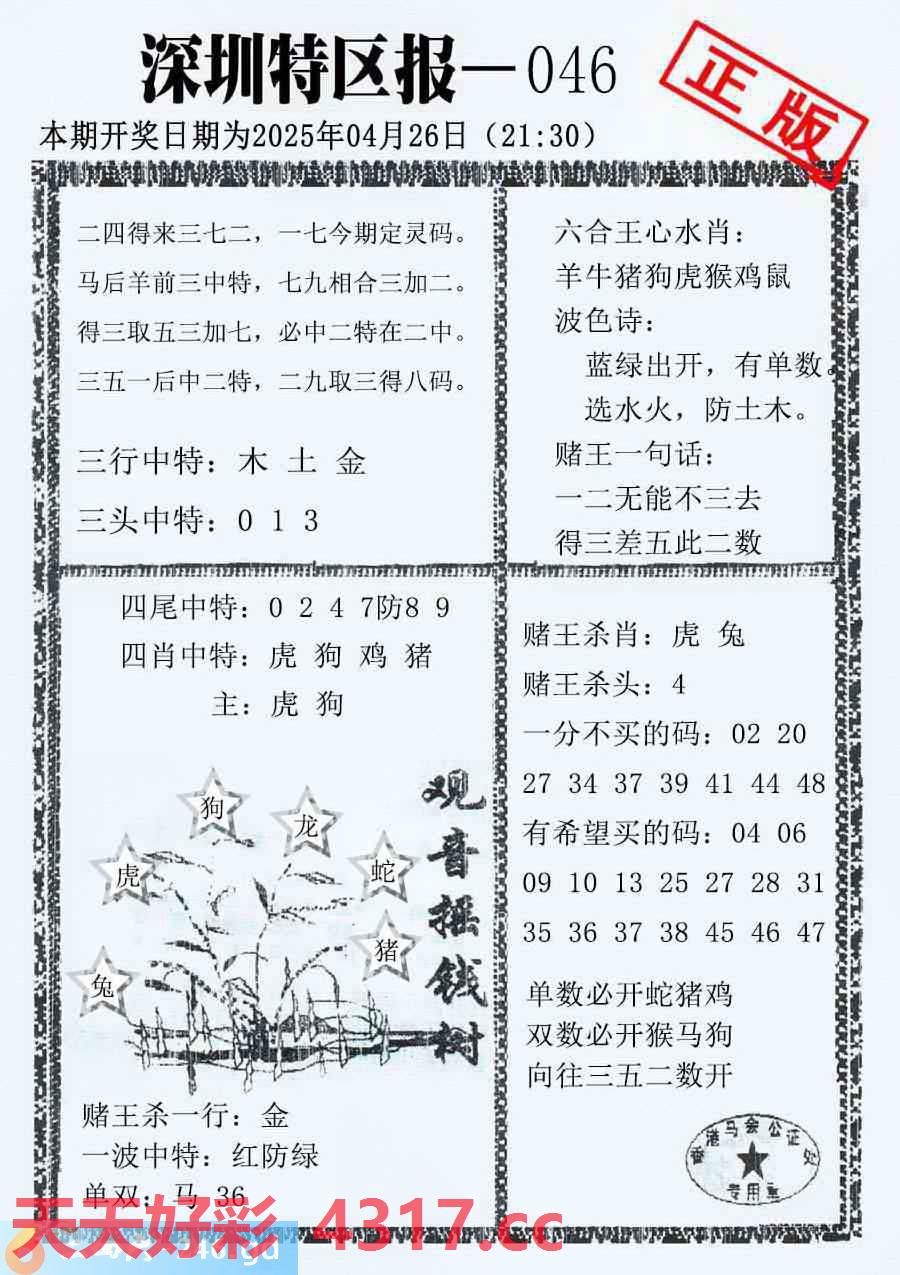 深圳特区报—046
正版
本期开奖日期为2025年04月26日（21:30）
二四得来三七二，一七今期定灵码。
马后羊前三中特，七九相合三加二。
得三取五三加七，必中二特在二中。
三五一后中二特，二九取三得八码。
三行中特：木 土 金
三头中特：0 1 3
六合王心水肖：
羊牛猪狗虎猴鸡鼠
波色诗：
蓝绿出开，有单数。
选水火，防土木。
赌王一句话：
一二无能不三去
得三差五此二数
四尾中特：0 2 4 7防8 9
四肖中特：虎 狗 鸡 猪
主：虎 狗
观音摇钱树
狗
龙
虎
蛇
猪
兔
赌王杀一行：金
一波中特：红防绿
单双：马 36
赌王杀肖：虎 兔
赌王杀头：4
一分不买的码：02 20
27 34 37 39 41 44 48
有希望买的码：04 06
09 10 13 25 27 28 31
35 36 37 38 45 46 47
单数必开蛇猪鸡
双数必开猴马狗
向往三五二数开
香港马会公证处
专用章
天天好彩 4317.cc